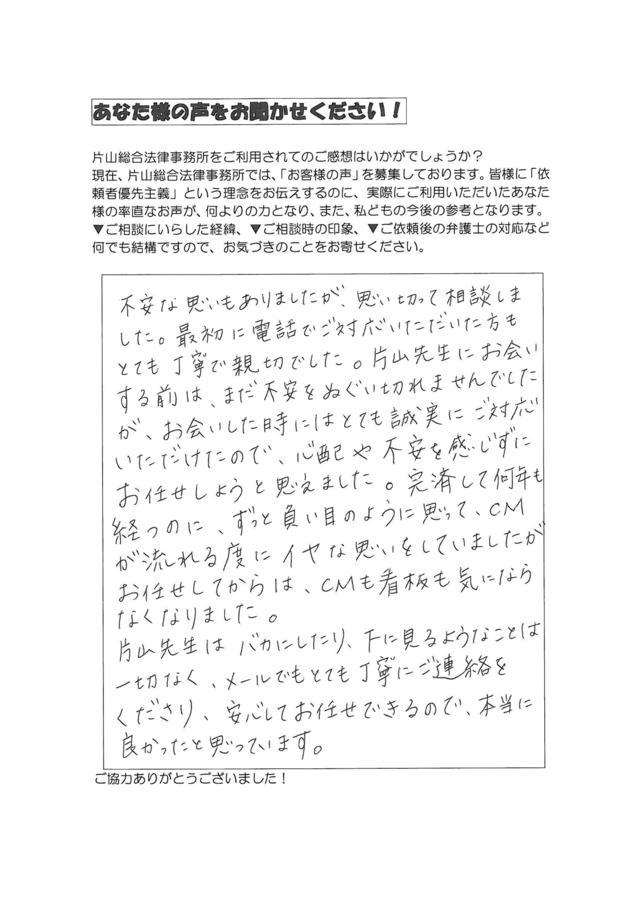 あなた様の声をお聞かせください！
片山総合法律事務所をご利用されてのご感想はいかがでしょうか？
現在、片山総合法律事務所では、「お客様の声」を募集しております。皆様に「依
頼者優先主義」という理念をお伝えするのに、実際にご利用いただいたあなた
様の率直なお声が、何よりの力となり、また、私どもの今後の参考となります。
▼ご相談にいらした経緯、▼ご相談時の印象、▼ご依頼後の弁護士の対応など
何でも結構ですので、お気づきのことをお寄せください。
不安な思いもありましたが、思い切って相談しま
した。最初に電話でご対応いただいた方も
とても丁寧で親切でした。片山先生にお会い
する前は、まだ不安をぬぐい切れませんでした
が、お会いした時にはとても誠実にご対応
いただけたので、心配や不安を感じずに
お任せしようと思えました。完済して何年も
経つのに、ずっと負い目のように思って、CM
が流れる度にイヤな思いをしていましたが
お任せしてからは、CMも看板も気になら
なくなりました。
片山先生はバカにしたり、下に見るようなことは
一切なく、メールでもとても丁寧にご連絡を
くださり、安心してお任せできるので、本当に
良かったと思っています。
ご協力ありがとうございました！